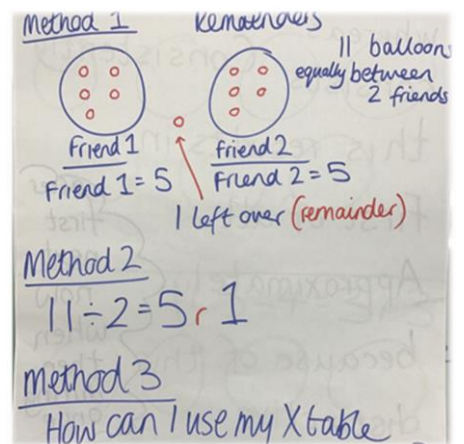 Method 1
Remainders
11 balloons
equally between
2 friends
Friend 1
friend 2
Friend 1 = 5
Friend 2 = 5
1 left over (remainder)
Method 2
11 ÷ 2 = 5 r 1
Method 3
How can I use my X table